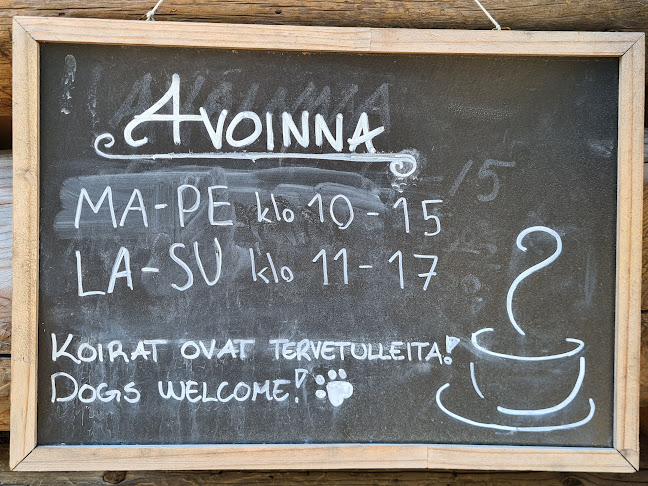 AVOINNA
MA-PE klo 10-15
LA-SU klo 11-17
KOIRAT OVAT TERVETULLEITA!
DOGS WELCOME!